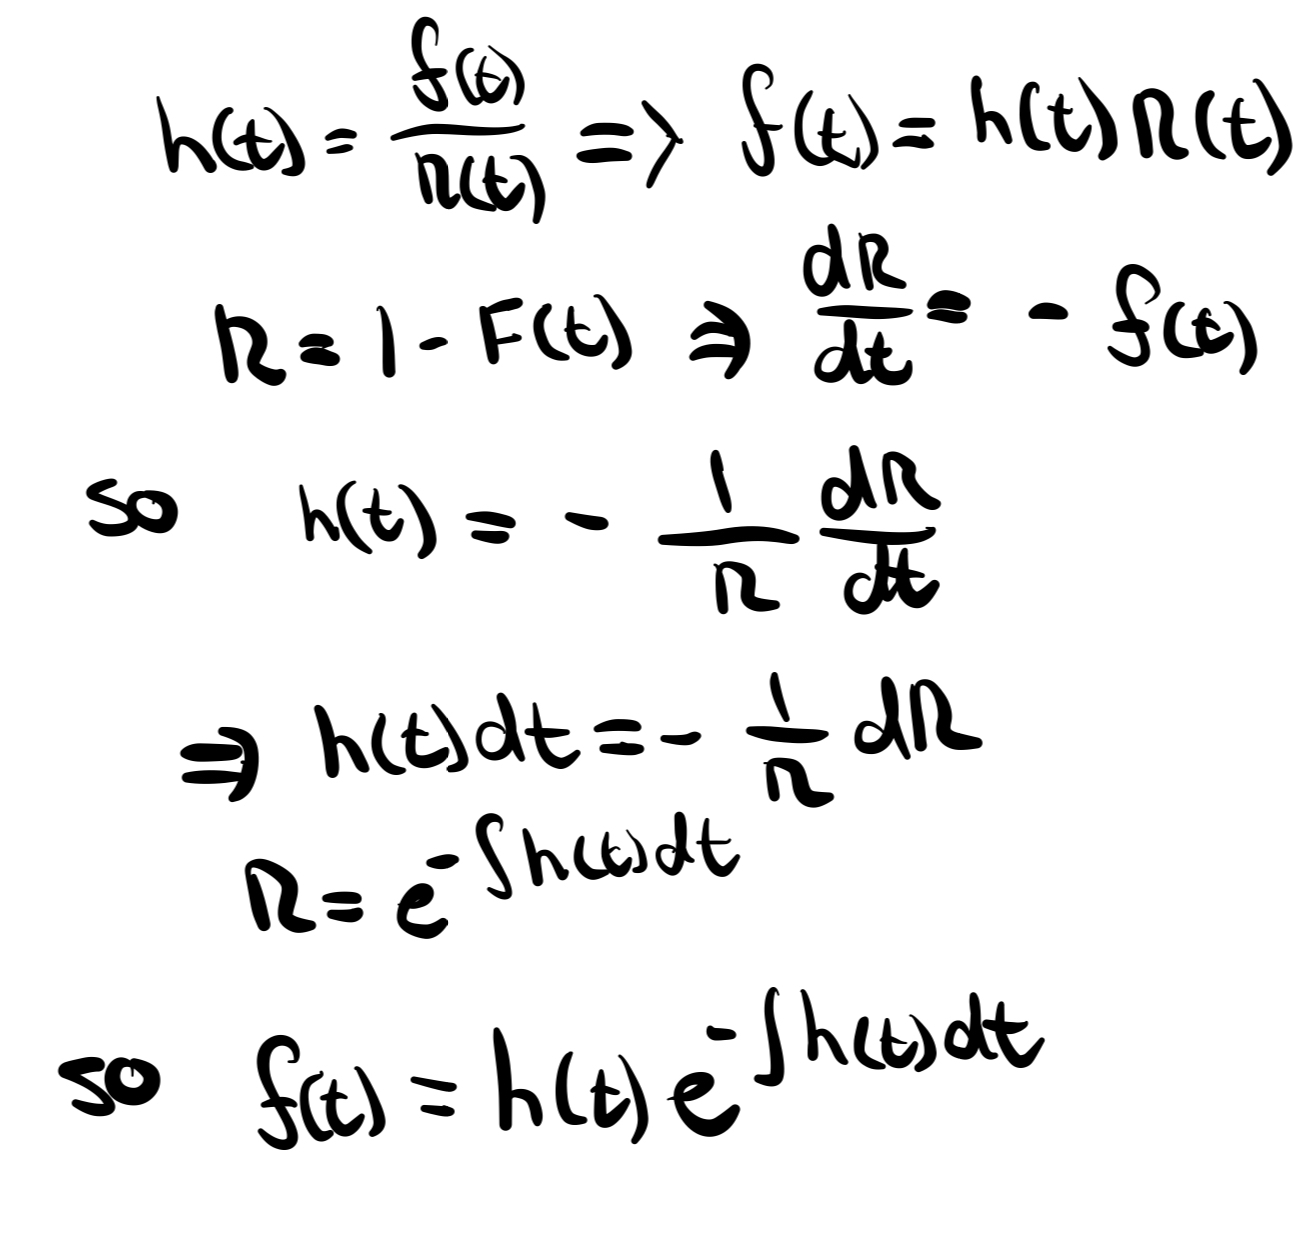 h(t) = f(t)/R(t) => f(t) = h(t) R(t)
R = 1 - F(t) => dR/dt = - f(t)
so h(t) = - 1/R dR/dt
=> h(t)dt = - 1/R dR
R = e^{-∫h(t)dt}
so f(t) = h(t) e^{-∫h(t)dt}